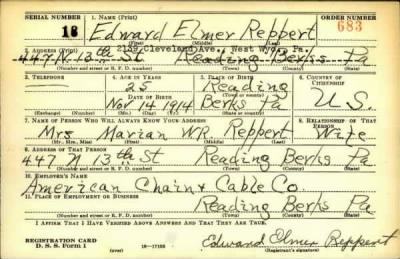 SERIAL NUMBER 1. NAME (Print) ORDER NUMBER
18 Edward Elmer Reppert 683
(First) (Middle) (Last)
2. ADDRESS (Print) 2139 Cleveland Ave., West Wyo., Pa.
447 N. 13th St Reading Berks Pa
(Number and street or R. F. D. number) (Town) (County) (State)
3. TELEPHONE 4. AGE IN YEARS 5. PLACE OF BIRTH 6. COUNTRY OF CITIZENSHIP
25 Reading
DATE OF BIRTH (Town or county)
Nov 14 1914 Berks Pa U.S.
(Exchange) (Number) (Mo.) (Day) (Yr.) (State or country)
7. NAME OF PERSON WHO WILL ALWAYS KNOW YOUR ADDRESS 8. RELATIONSHIP OF THAT PERSON
Mrs Marian W.R. Reppert Wife
(Mr., Mrs., Miss) (First) (Middle) (Last)
9. ADDRESS OF THAT PERSON
447 N 13th St Reading Berks Pa
(Number and street or R. F. D. number) (Town) (County) (State)
10. EMPLOYER'S NAME
American Chain & Cable Co.
11. PLACE OF EMPLOYMENT OR BUSINESS
Reading Berks Pa
(Number and street or R. F. D. number) (Town) (County) (State)
I AFFIRM THAT I HAVE VERIFIED ABOVE ANSWERS AND THAT THEY ARE TRUE.
REGISTRATION CARD
D. S. S. Form 1 (over) 16-17105 Edward Elmer Reppert